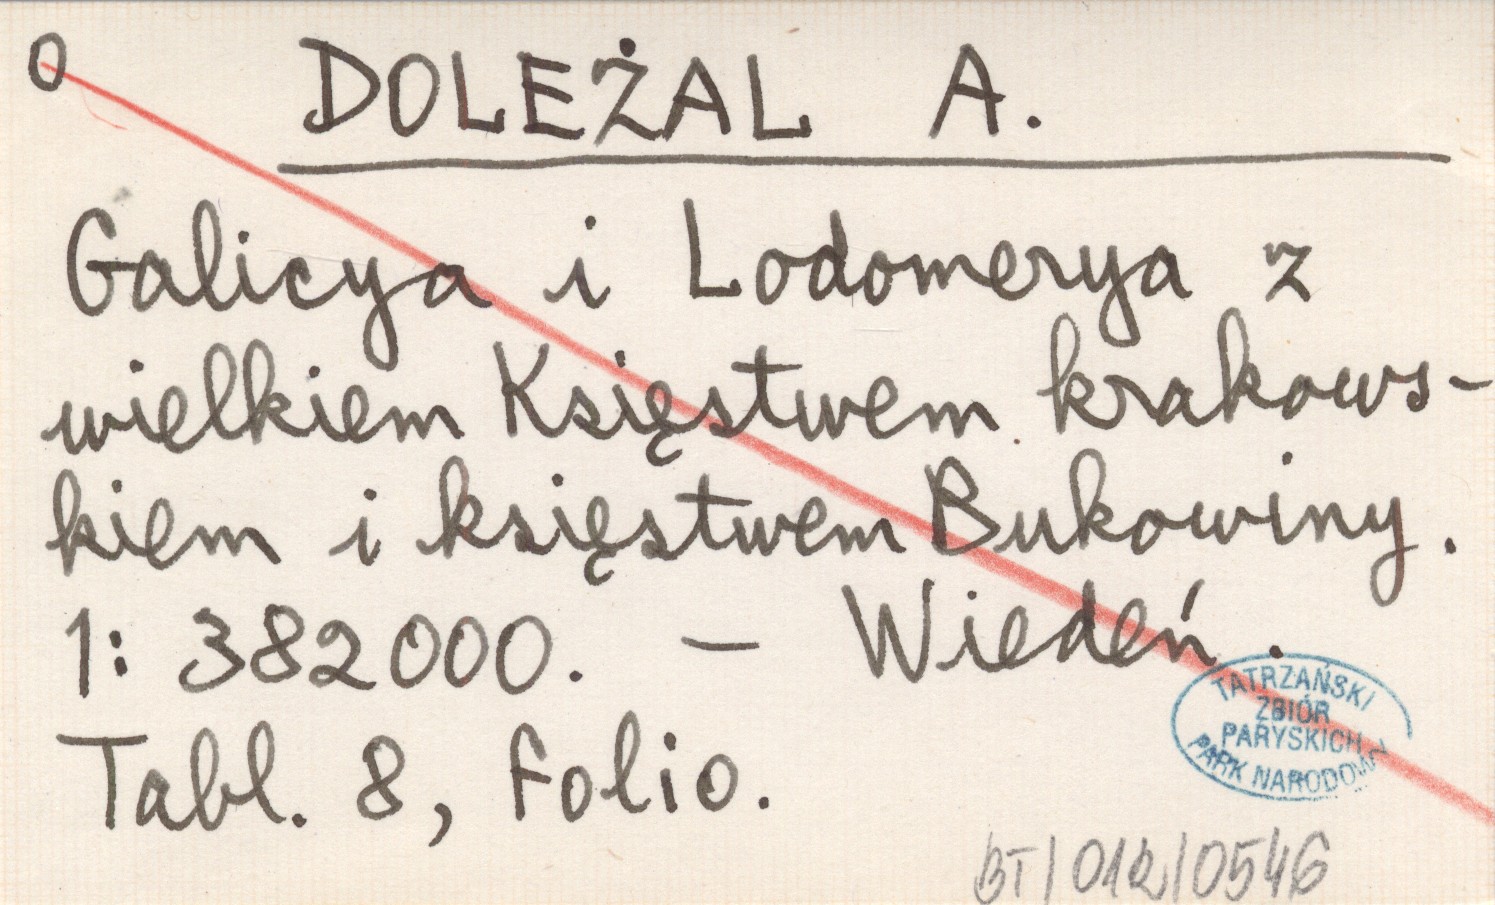 O DOLEŻAL A.
Galicya i Lodomerya z
wielkiem Księstwem krakows-
kiem i księstwem Bukowiny.
1: 382000. — Wiedeń.
Tabl. 8, folio.
TATRZAŃSKI
ZBIÓR
PARYSKICH
PARK NARODOWY
BT/012/0546